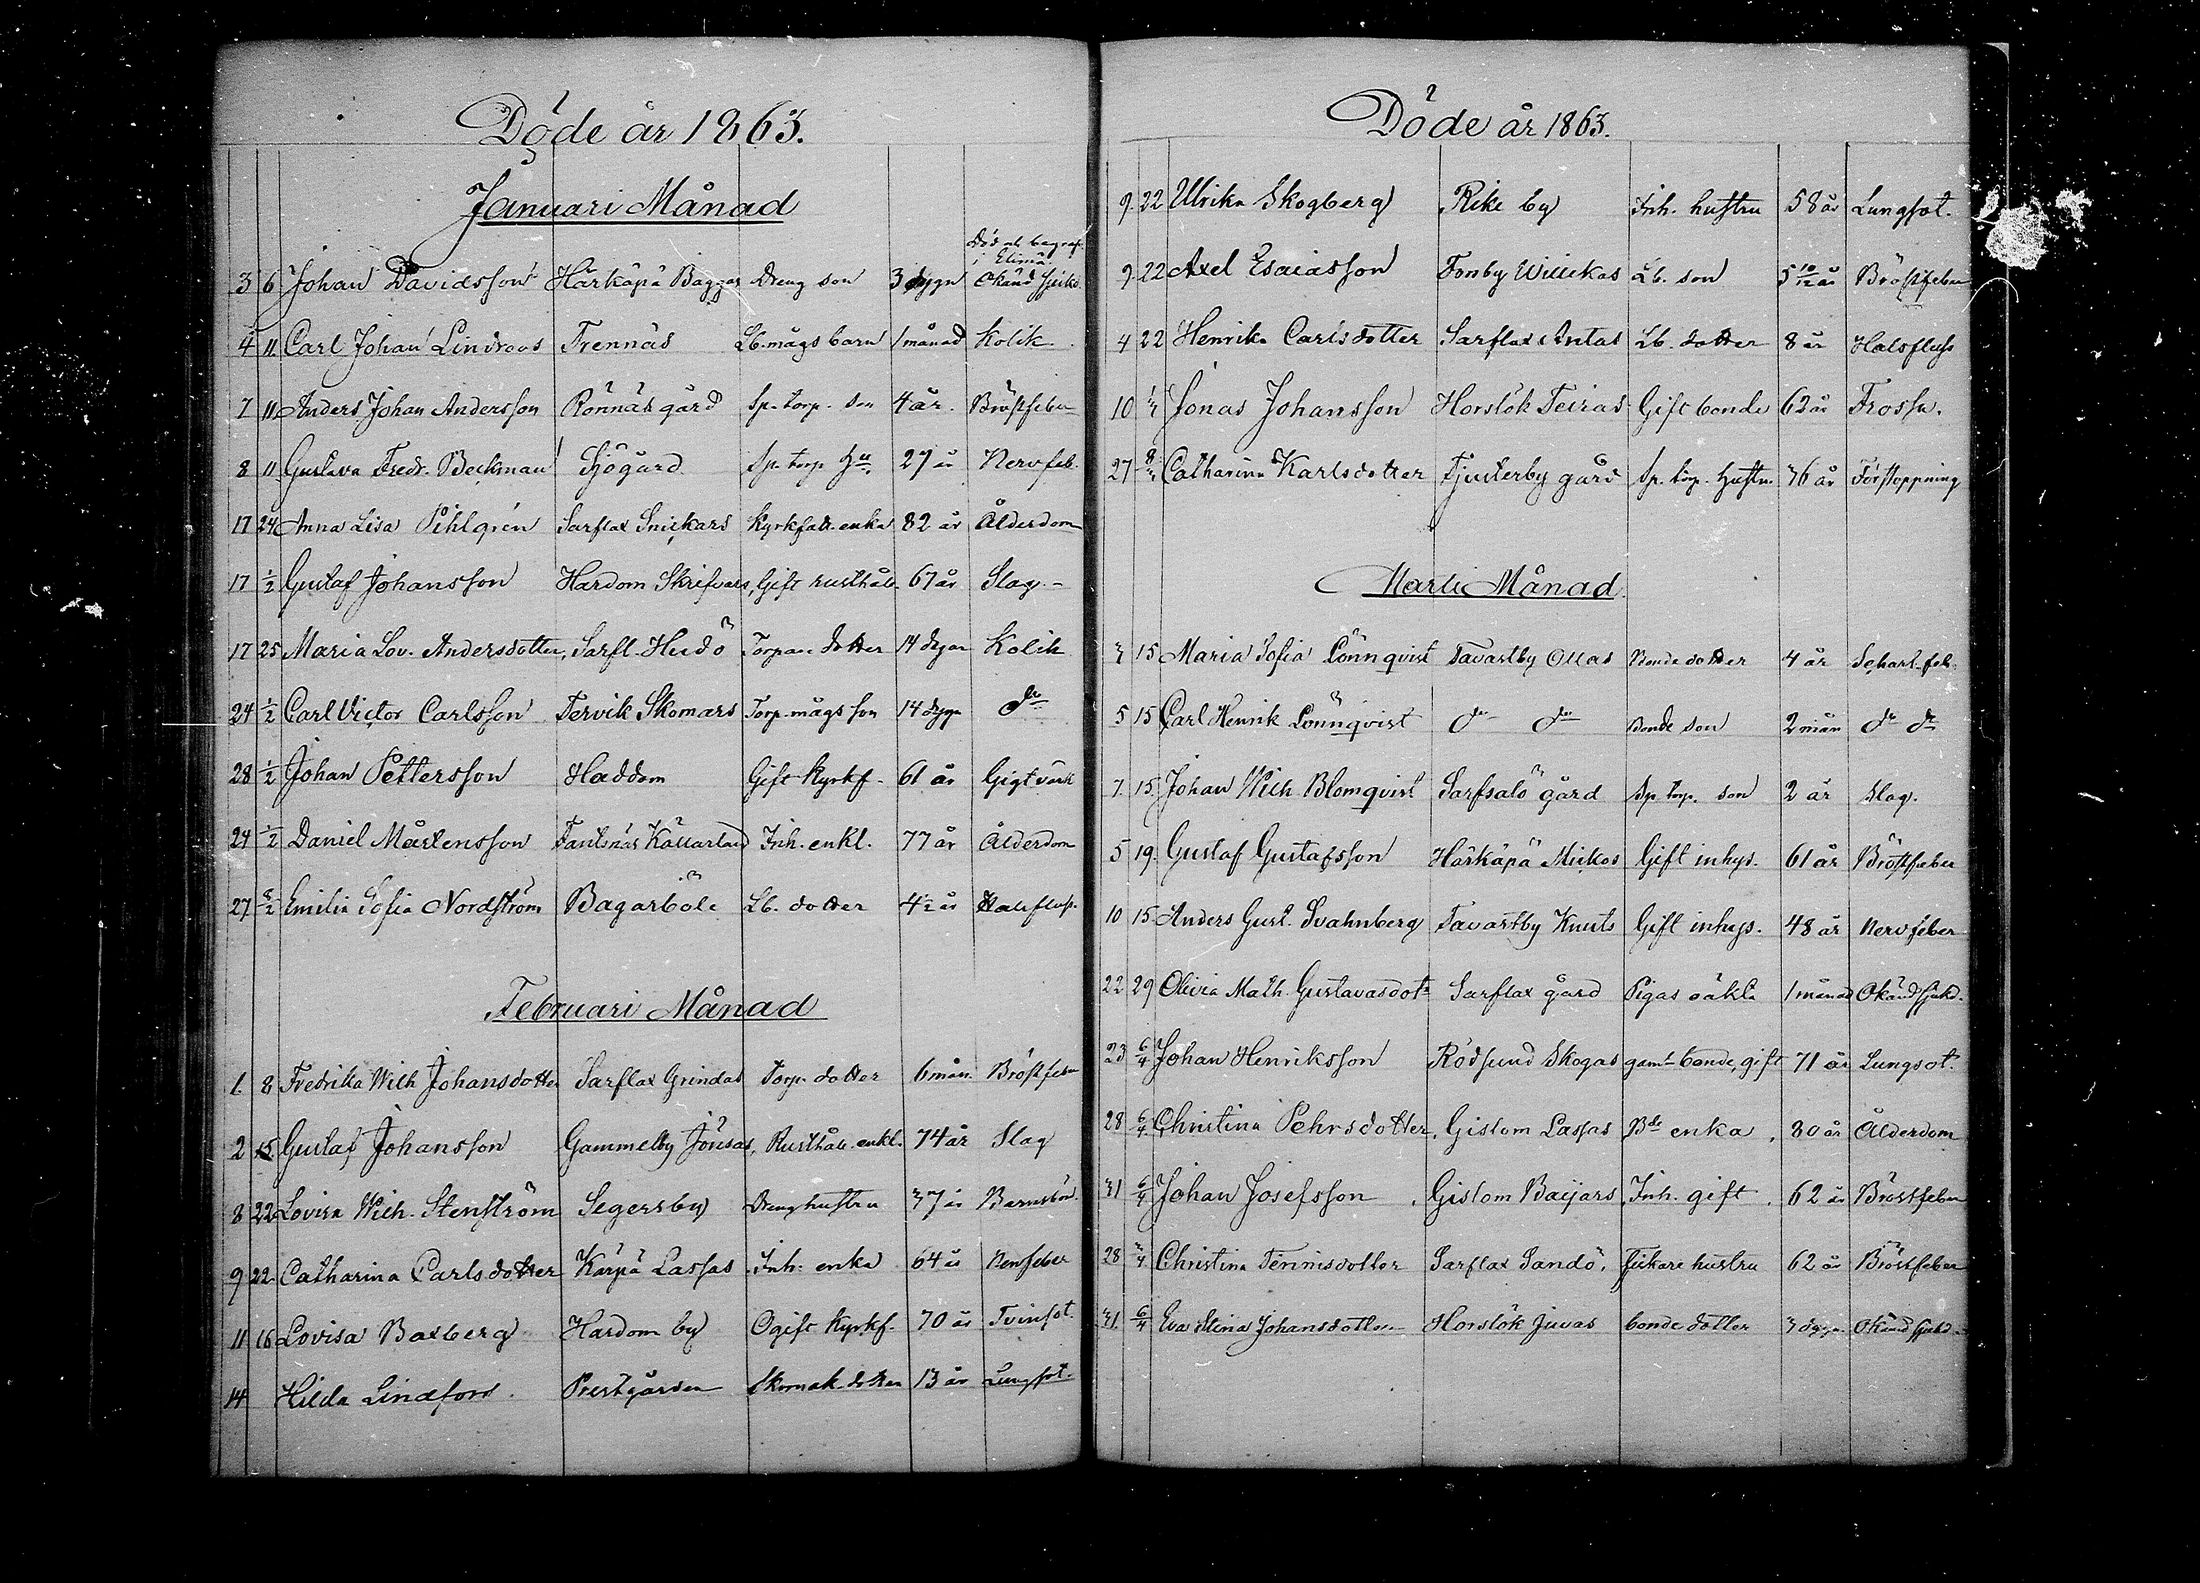 Döde år 1863.
Januari Månad
Död och begraf.
i Elimä.
3 6 Johan Davidsson Härkäpä Baggas Dreng son 3 dygn Okänd sjukd.
4 11 Carl Johan Lindroos Trennäs Lb. mågs barn 1 månad Kolik
7 11 Anders Johan Andersson Rönnäs gård Sp. torp. son 4 år. Bröstfeber
8 11 Gustava Fredr. Beckman Sjögård Sp. torp. Hu 27 år Nervfeb.
17 24 Anna Lisa Pihlgrén Sarflax Snickars Kyrkfatt. enka 82 år Ålderdom
17 1/2 Gustaf Johansson Hardom Skrifvars, Gift rusthåll. 67 år Slag.
17 25 Maria Lov. Andersdotter, Sarfl. Hudö Torpare dotter 14 dygn Kolik
24 1/2 Carl Victor Carlsson Tervik Skomars Torp. mågs son 14 dygn do
28 1/2 Johan Pettersson Haddom Gift kyrkf. 61 år Gigtvärk
24 1/2 Daniel Mårtensson Fantsnäs Källarland Inh. enkl. 77 år Ålderdom
27 8/2 Emilia Sofia Nordström Bagarböle Lb. dotter 4 1/2 år Halsfluss.
Februari Månad
1. 8 Fredrika Wilh Johansdotter Sarflax Grindas Torp. dotter 6 mån. Bröstfeber
2 15 Gustaf Johansson Gammelby Jönsas, Rusthåll. enkl. 74 år Slag
8 22 Lovisa Wilh. Stenström Segersby Drenghustru 37 år Barnsbörd.
9 22 Catharina Carlsdotter Kärpä Lassas Inh. enka 64 år Nervfeber
11 16 Lovisa Baxberg Hardom by Ogift kyrkf. 70 år Tvinsot.
14 Hilda Lindfors. Prestgården Skomak. dotter 13 år Lungsot.
Döde år 1863.
9. 22 Ulrika Skogberg Rike by Inh. hustru 58 år Lungsot.
9 22 Axel Esaiasson Tonby Willekas Lb. son 5 10/12 år Bröstfeber
4 22 Henrika Carlsdotter Sarflax Antas Lb. dotter 8 år Halsfluss
10 1/3 Jonas Johansson Horslök Teiras Gift bonde 62 år Frossa.
27 8/3 Catharina Karlsdotter Tjusterby gård Sp. torp. hustru 76 år Förstoppning
Marti Månad
3 15 Maria Sofia Lönnqvist Tavastby Ollas Bonde dotter 4 år Scharl. feb.
5 15 Carl Henrik Lönnqvist do do Bonde son 2 mån do do
7. 15. Johan Wilh Blomqvist Sarfsalö gård Sp. torp. son 2 år Slag.
5 19. Gustaf Gustafsson Härkäpä Mickos Gift inhys. 61 år Bröstfeber
10 15 Anders Gust. Svahnberg Tavastby Knuts Gift inhys. 48 år Nervfeber
22 29 Olivia Math. Gustavasdotr Sarflax gård Pigas oäkta 1 månad Okänd sjukd.
23 6/4 Johan Henriksson Rödsund Skogas gaml bonde, gift 71 år Lungsot.
28 6/4 Christina Pehrsdotter, Gislom Lassas Bde enka, 80 år Ålderdom
31 6/4 Johan Josefsson, Gislom Baijars Inh. gift, 62 år Bröstfeber
28 3/4 Christina Tennisdotter Sarflax Sandö, fiskare hustru 62 år Bröstfeber
31. 6/4 Eva Stina Johansdotter Horslök Juvas bonde dotter 3 dygn. Okänd sjukd.